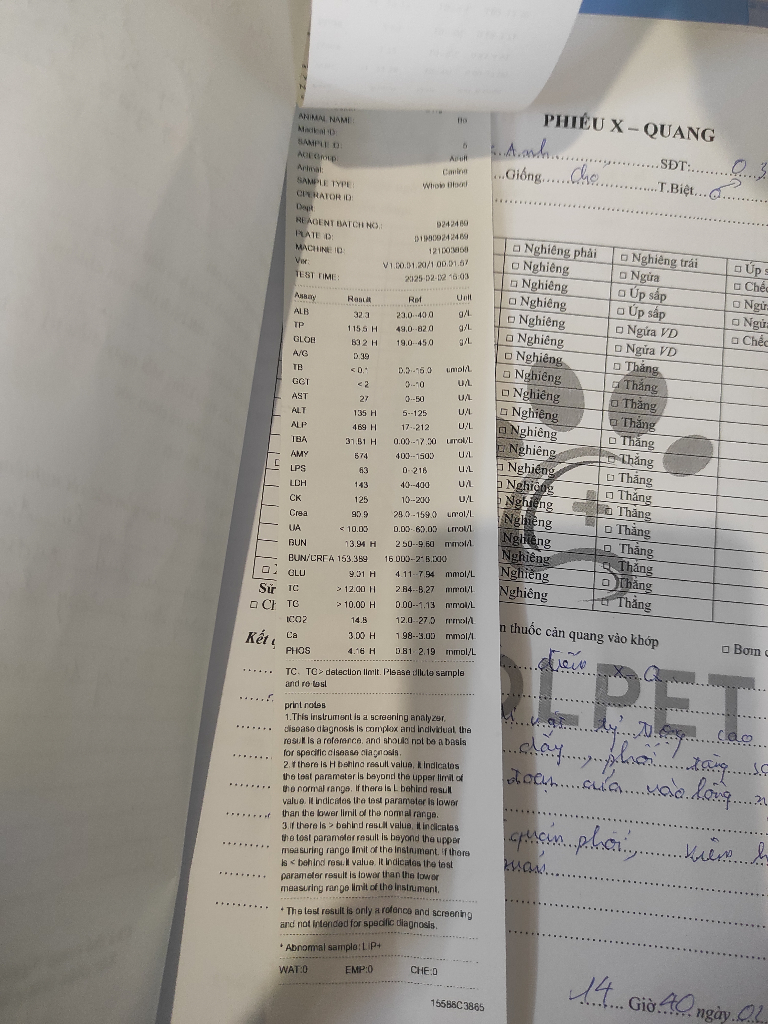 ANIMAL NAME: Bo
Medical ID:
SAMPLE ID: 5
AGEGroup: Adult
Animal: Canine
SAMPLE TYPE: Whole Blood
OPERATOR ID:
Dept:
REAGENT BATCH NO.: 9242469
PLATE ID: 019809242469
MACHINE ID: 121003858
Ver: V1.00.01.20/1.00.01.57
TEST TIME: 2025-02-02 15:03
Assay Result Ref Unit
ALB 32.3 23.0--40.0 g/L
TP 115.5 H 49.0--82.0 g/L
GLOB 83.2 H 19.0--45.0 g/L
A/G 0.39
TB <0.1 0.0--15.0 umol/L
GGT <2 0--10 U/L
AST 27 0--50 U/L
ALT 135 H 5--125 U/L
ALP 469 H 17--212 U/L
TBA 31.81 H 0.00--17.00 umol/L
AMY 674 400--1500 U/L
LPS 63 0--216 U/L
LDH 143 40--400 U/L
CK 125 10--200 U/L
Crea 90.9 28.0--159.0 umol/L
UA <10.00 0.00--60.00 umol/L
BUN 13.94 H 2.50--9.60 mmol/L
BUN/CREA 153.359 16.000--218.000
GLU 9.01 H 4.11--7.94 mmol/L
TC >12.00 H 2.84--8.27 mmol/L
TG >10.00 H 0.00--1.13 mmol/L
tCO2 14.8 12.0--27.0 mmol/L
Ca 3.00 H 1.98--3.00 mmol/L
PHOS 4.16 H 0.81--2.19 mmol/L
TC, TG> detection limit. Please dilute sample
and re-test
print notes
1.This instrument is a screening analyzer,
disease diagnosis is complex and individual, the
result is a reference, and should not be a basis
for specific disease diagnosis.
2. if there is H behind result value, it indicates
the test parameter is beyond the upper limit of
the normal range. If there is L behind result
value. It indicates the test parameter is lower
than the lower limit of the normal range.
3.if there is > behind result value, it indicates
the test parameter result is beyond the upper
measuring range limit of the instrument. If there
is < behind result value. It indicates the test
parameter result is lower than the lower
measuring range limit of the instrument.
* The test result is only a refence and screening
and not intended for specific diagnosis.
* Abnormal sample: LIP+
WAT:0 EMP:0 CHE:0
15586C3865
PHIẾU X – QUANG
Anh SĐT: 0 3
Giống Chó T.Biệt ♂
□ Nghiêng phải □ Nghiêng trái □ Úp s
□ Nghiêng □ Ngửa □ Chếc
□ Nghiêng □ Úp sấp □ Ngử
□ Nghiêng □ Úp sấp □ Ngử
□ Nghiêng □ Ngửa VD □ Chếc
□ Nghiêng □ Ngửa VD
□ Nghiêng □ Thẳng
□ Nghiêng □ Thẳng
□ Nghiêng □ Thẳng
□ Nghiêng □ Thẳng
□ Nghiêng □ Thẳng
□ Nghiêng □ Thẳng
□ Nghiêng □ Thẳng
□ Nghiêng □ Thẳng
□ Nghiêng □ Thẳng
□ Nghiêng □ Thẳng
□ Nghiêng □ Thẳng
□ Nghiêng □ Thẳng
Nghiêng □ Thẳng
□ Thẳng
Sử
□ Ch
n thuốc cản quang vào khớp □ Bơm
Kết
OLPET
điểm x Q
cao
dây, phổi tăng
đoạn vào lòng
quản phổi, viêm
14 Giờ 40 ngày 02